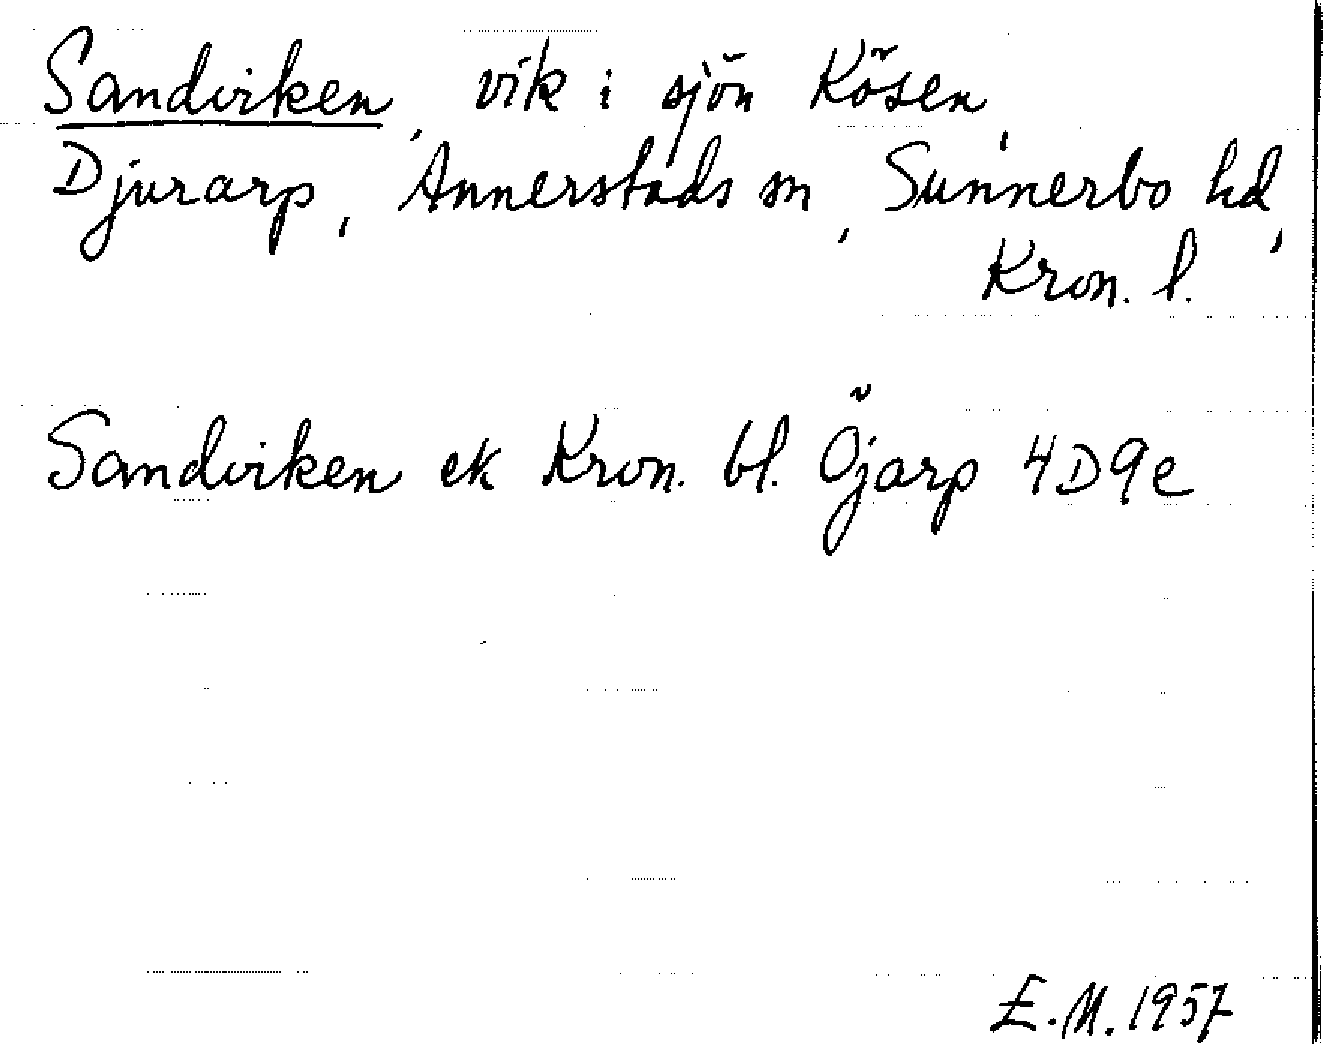 Sandviken, vik i sjön Kösen,
Djurarp, Annerstads sn, Sunnerbo hd,
Kron. l.
Sandviken ek Kron. bl. Öjarp 4D9e
E.M. 1957